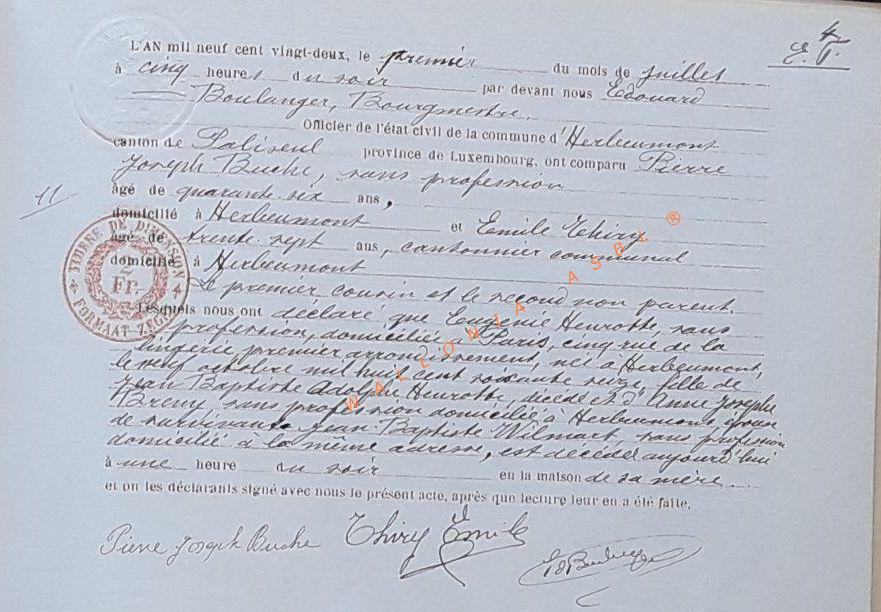 4
E. T.
L'AN mil neuf cent vingt-deux, le premier du mois de juillet
à cinq heures du soir par devant nous Edouard
Boulanger, Bourgmestre
Officier de l'état civil de la commune d'Herbeumont
canton de Paliseul province de Luxembourg, ont comparu Pierre
Joseph Buche, sans profession
âgé de quarante six ans,
11
domicilié à Herbeumont et Emile Thiry
âgé de trente sept ans, cantonnier communal
domicilié à Herbeumont
Le premier cousin et le second non parent.
Lesquels nous ont déclaré que Eugénie Henrotte, sans
profession, domiciliée Paris, cinq rue de la
lingerie premier arrondissement, née à Herbeumont,
le neuf octobre mil huit cent soixante seize, fille de
Jean Baptiste Adolphe Henrotte, décédé et d'Anne Joseph
Bremy, sans profession domiciliée à Herbeumont, épouse
de survivant Jean Baptiste Wilmart, sans profession
domicilié à la même adresse, est décédée aujourd'hui
à une heure du soir en la maison de sa mère
et on les déclarants signé avec nous le présent acte, après que lecture leur en a été faite.
Pierre Joseph Buche Thiry Emile Ed Boulanger
TIMBRE DE DIMENSION
2
Fr.
FORMAAT-ZEGEL
WALLONIA ASBL ®